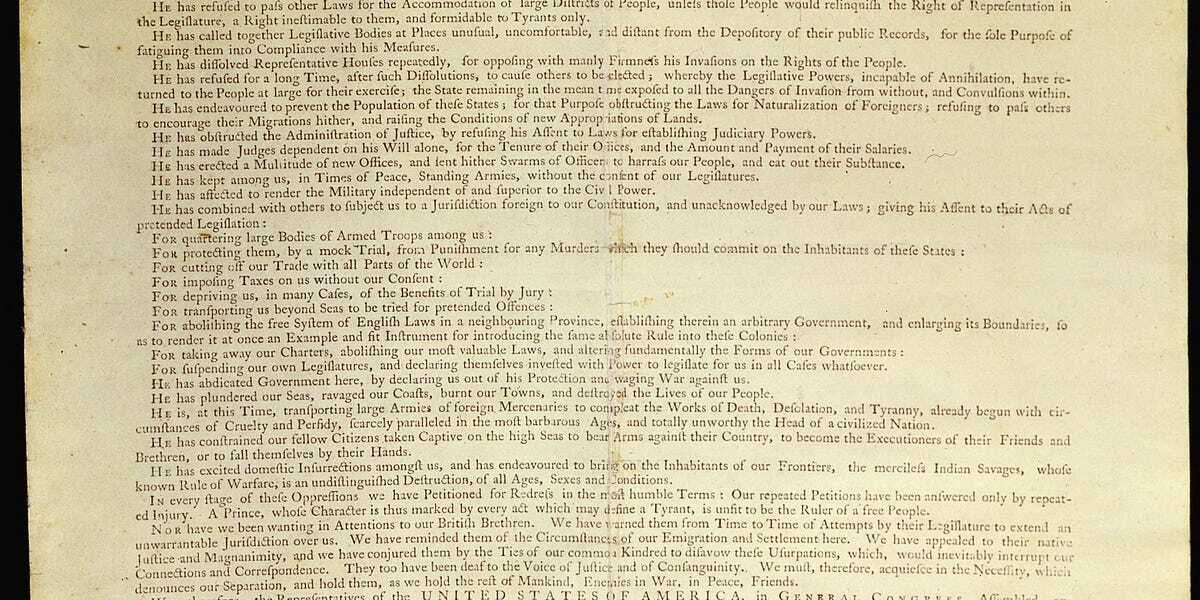 HE has refuſed to paſs other Laws for the Accommodation of large Diſtricts of People, unleſs thoſe People would relinquiſh the Right of Repreſentation in
the Legiſlature, a Right ineſtimable to them, and formidable to Tyrants only.
HE has called together Legiſlative Bodies at Places unuſual, uncomfortable, and diſtant from the Depoſitory of their public Records, for the ſole Purpoſe of
fatiguing them into Compliance with his Meaſures.
HE has diſſolved Repreſentative Houſes repeatedly, for oppoſing with manly Firmneſs his Invaſions on the Rights of the People.
HE has refuſed for a long Time, after ſuch Diſſolutions, to cauſe others to be elected; whereby the Legiſlative Powers, incapable of Annihilation, have re-
turned to the People at large for their exerciſe; the State remaining in the mean time expoſed to all the Dangers of Invaſion from without, and Convulſions within.
HE has endeavoured to prevent the Population of theſe States; for that Purpoſe obſtructing the Laws for Naturalization of Foreigners; refuſing to paſs others
to encourage their Migrations hither, and raiſing the Conditions of new Appropriations of Lands.
HE has obſtructed the Adminiſtration of Juſtice, by refuſing his Aſſent to Laws for eſtabliſhing Judiciary Powers.
HE has made Judges dependent on his Will alone, for the Tenure of their Offices, and the Amount and Payment of their Salaries.
HE has erected a Multitude of new Offices, and ſent hither Swarms of Officers to harraſs our People, and eat out their Subſtance.
HE has kept among us, in Times of Peace, Standing Armies, without the conſent of our Legiſlatures.
HE has affected to render the Military independent of and ſuperior to the Civil Power.
HE has combined with others to ſubject us to a Juriſdiction foreign to our Conſtitution, and unacknowledged by our Laws; giving his Aſſent to their Acts of
pretended Legiſlation:
FOR quartering large Bodies of Armed Troops among us:
FOR protecting them, by a mock Trial, from Puniſhment for any Murders which they ſhould commit on the Inhabitants of theſe States:
FOR cutting off our Trade with all Parts of the World:
FOR impoſing Taxes on us without our Conſent:
FOR depriving us, in many Caſes, of the Benefits of Trial by Jury:
FOR tranſporting us beyond Seas to be tried for pretended Offences:
FOR aboliſhing the free Syſtem of Engliſh Laws in a neighbouring Province, eſtabliſhing therein an arbitrary Government, and enlarging its Boundaries, ſo
as to render it at once an Example and fit Inſtrument for introducing the ſame abſolute Rule into theſe Colonies:
FOR taking away our Charters, aboliſhing our moſt valuable Laws, and altering fundamentally the Forms of our Governments:
FOR ſuſpending our own Legiſlatures, and declaring themſelves inveſted with Power to legiſlate for us in all Caſes whatſoever.
HE has abdicated Government here, by declaring us out of his Protection and waging War againſt us.
HE has plundered our Seas, ravaged our Coaſts, burnt our Towns, and deſtroyed the Lives of our People.
HE is, at this Time, tranſporting large Armies of foreign Mercenaries to compleat the Works of Death, Deſolation, and Tyranny, already begun with cir-
cumſtances of Cruelty and Perfidy, ſcarcely paralleled in the moſt barbarous Ages, and totally unworthy the Head of a civilized Nation.
HE has conſtrained our fellow Citizens taken Captive on the high Seas to bear Arms againſt their Country, to become the Executioners of their Friends and
Brethren, or to fall themſelves by their Hands.
HE has excited domeſtic Inſurrections amongſt us, and has endeavoured to bring on the Inhabitants of our Frontiers, the mercileſs Indian Savages, whoſe
known Rule of Warfare, is an undiſtinguiſhed Deſtruction, of all Ages, Sexes and Conditions.
IN every ſtage of theſe Oppreſſions we have Petitioned for Redreſs in the moſt humble Terms: Our repeated Petitions have been anſwered only by repeat-
ed Injury. A Prince, whoſe Character is thus marked by every act which may define a Tyrant, is unfit to be the Ruler of a free People.
NOR have we been wanting in Attentions to our Britiſh Brethren. We have warned them from Time to Time of Attempts by their Legiſlature to extend an
unwarrantable Juriſdiction over us. We have reminded them of the Circumſtances of our Emigration and Settlement here. We have appealed to their native
Juſtice and Magnanimity, and we have conjured them by the Ties of our common Kindred to diſavow theſe Uſurpations, which, would inevitably interrupt our
Connections and Correſpondence. They too have been deaf to the Voice of Juſtice and of Conſanguinity. We muſt, therefore, acquieſce in the Neceſſity, which
denounces our Separation, and hold them, as we hold the reſt of Mankind, Enemies in War, in Peace, Friends.
the Repreſentatives of the UNITED STATES OF AMERICA, in GENERAL CONGRESS, Aſſembled,